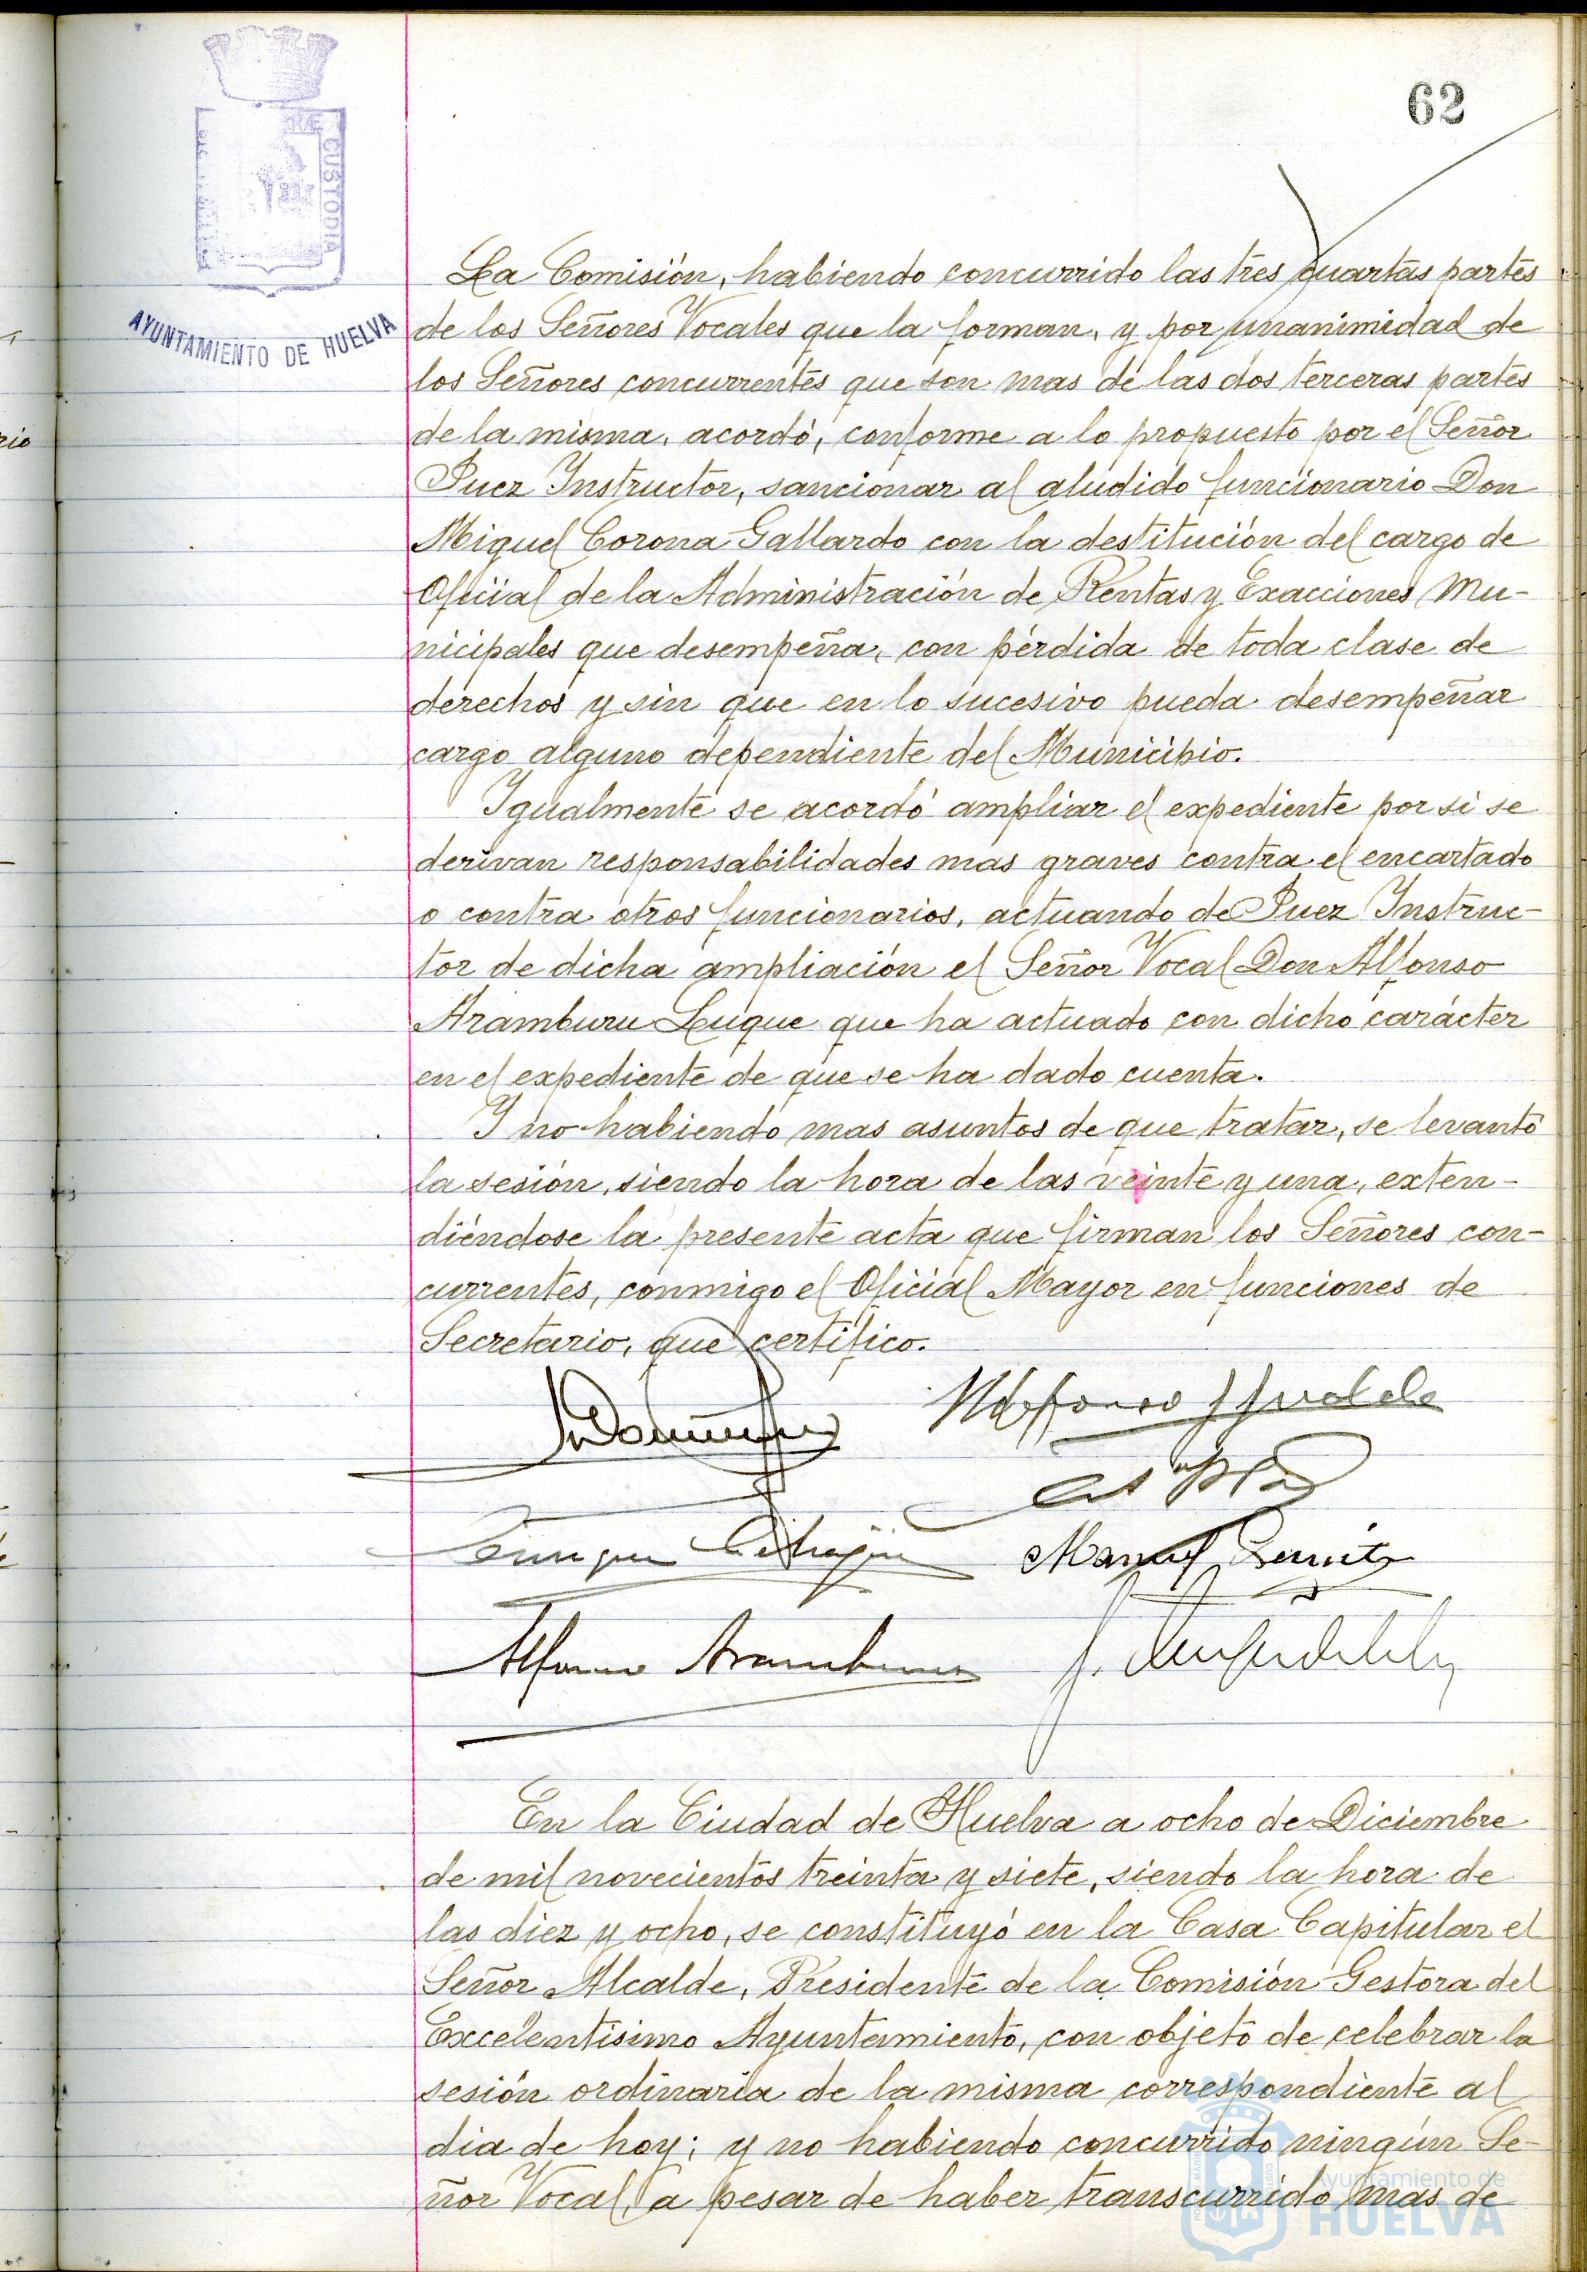 62
CUSTODIA
AYUNTAMIENTO DE HUELVA
La Comisión, habiendo concurrido las tres cuartas partes
de los Señores Vocales que la forman, y por unanimidad de
los Señores concurrentes que son mas de las dos terceras partes
de la misma, acordó, conforme a lo propuesto por el Señor
Juez Instructor, sancionar al aludido funcionario Don
Miguel Corona Gallardo con la destitución del cargo de
Oficial de la Administración de Rentas y Exacciones Mu-
nicipales que desempeña, con pérdida de toda clase de
derechos y sin que en lo sucesivo pueda desempeñar
cargo alguno dependiente del Municipio.
Igualmente se acordó ampliar el expediente por si se
derivan responsabilidades mas graves contra el encartado
o contra otros funcionarios, actuando de Juez Instruc-
tor de dicha ampliación el Señor Vocal Don Alfonso
Aramburu Luque que ha actuado con dicho carácter
en el expediente de que se ha dado cuenta.
Y no habiendo mas asuntos de que tratar, se levantó
la sesión, siendo la hora de las veinte y una, exten-
diéndose la presente acta que firman los Señores con-
currentes, conmigo el Oficial Mayor en funciones de
Secretario, que certifico.
Enrique
Manuel
Alfonso Aramburu
En la Ciudad de Huelva a ocho de Diciembre
de mil novecientos treinta y siete, siendo la hora de
las diez y ocho, se constituyó en la Casa Capitular el
Señor Alcalde, Presidente de la Comisión Gestora del
Excelentísimo Ayuntamiento, con objeto de celebrar la
sesión ordinaria de la misma correspondiente al
dia de hoy; y no habiendo concurrido ningún Se-
ñor Vocal, a pesar de haber transcurrido mas de
Ayuntamiento de
HUELVA